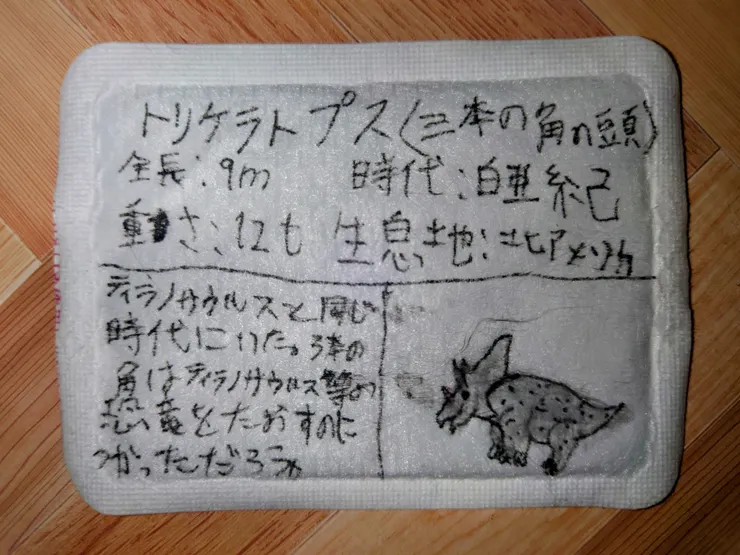 トリケラトプス(三本の角の頭)
全長:9m 時代:白亜紀
動さ:12t 生息地:北アメリカ
ティラノサウルスと同じ
時代にいた。3本の
角はティラノサウルス等の
恐竜をたおすのに
つかっただろう。